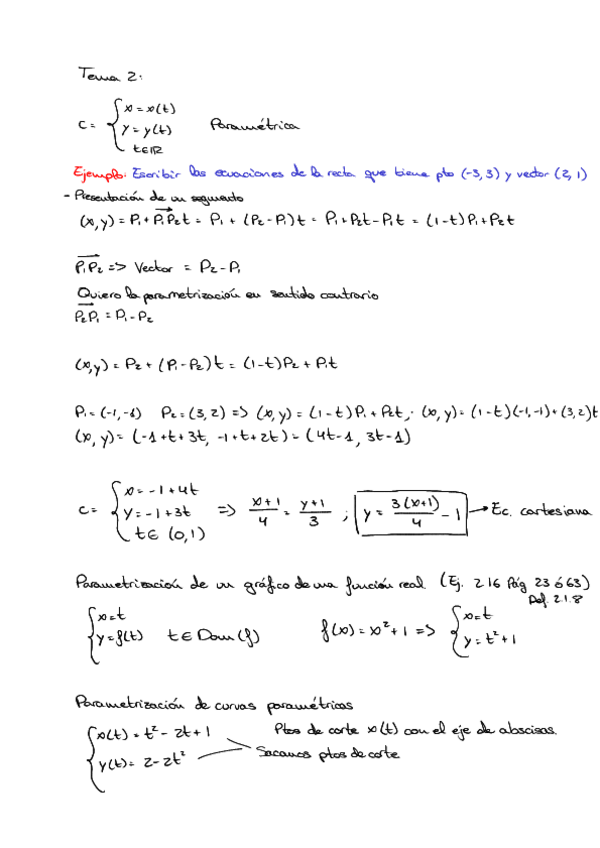 Tema 2:
C = { x = x(t)
y = y(t) Paramétrica
t∈IR
Ejemplo: Escribir las ecuaciones de la recta que tiene pto (-3,3) y vector (2,1)
- Presentación de un segmento
(x,y) = P₁ + P₁P₂t = P₁ + (P₂-P₁)t = P₁+P₂t-P₁t = (1-t)P₁+P₂t
P₁P₂ => Vector = P₂-P₁
Quiero la parametrización en sentido contrario
P₂P₁ = P₁-P₂
(x,y) = P₂ + (P₁-P₂)t = (1-t)P₂ + P₁t
P₁ = (-1,-1) P₂ = (3,2) => (x,y) = (1-t)P₁ + P₂t, · (x,y) = (1-t)(-1,-1)+(3,2)t
(x,y) = (-1+t+3t, -1+t+2t) = (4t-1, 3t-1)
C = { x = -1+4t
y = -1+3t => (x+1)/4 = (y+1)/3 ; y = 3(x+1)/4 - 1 → Ec. cartesiana
t∈ (0,1)
Parametrización de un gráfico de una función real (Ej. 2.16 Pág 23 ó 63)
Def. 2.1.8
{ x=t
y=f(t) t∈Dom(f) f(x) = x²+1 => { x=t
y = t²+1
Parametrización de curvas paramétricas
{ x(t) = t² - 2t + 1 Ptos de corte x(t) con el eje de abscisas.
y(t) = 2-2t² Sacamos ptos de corte